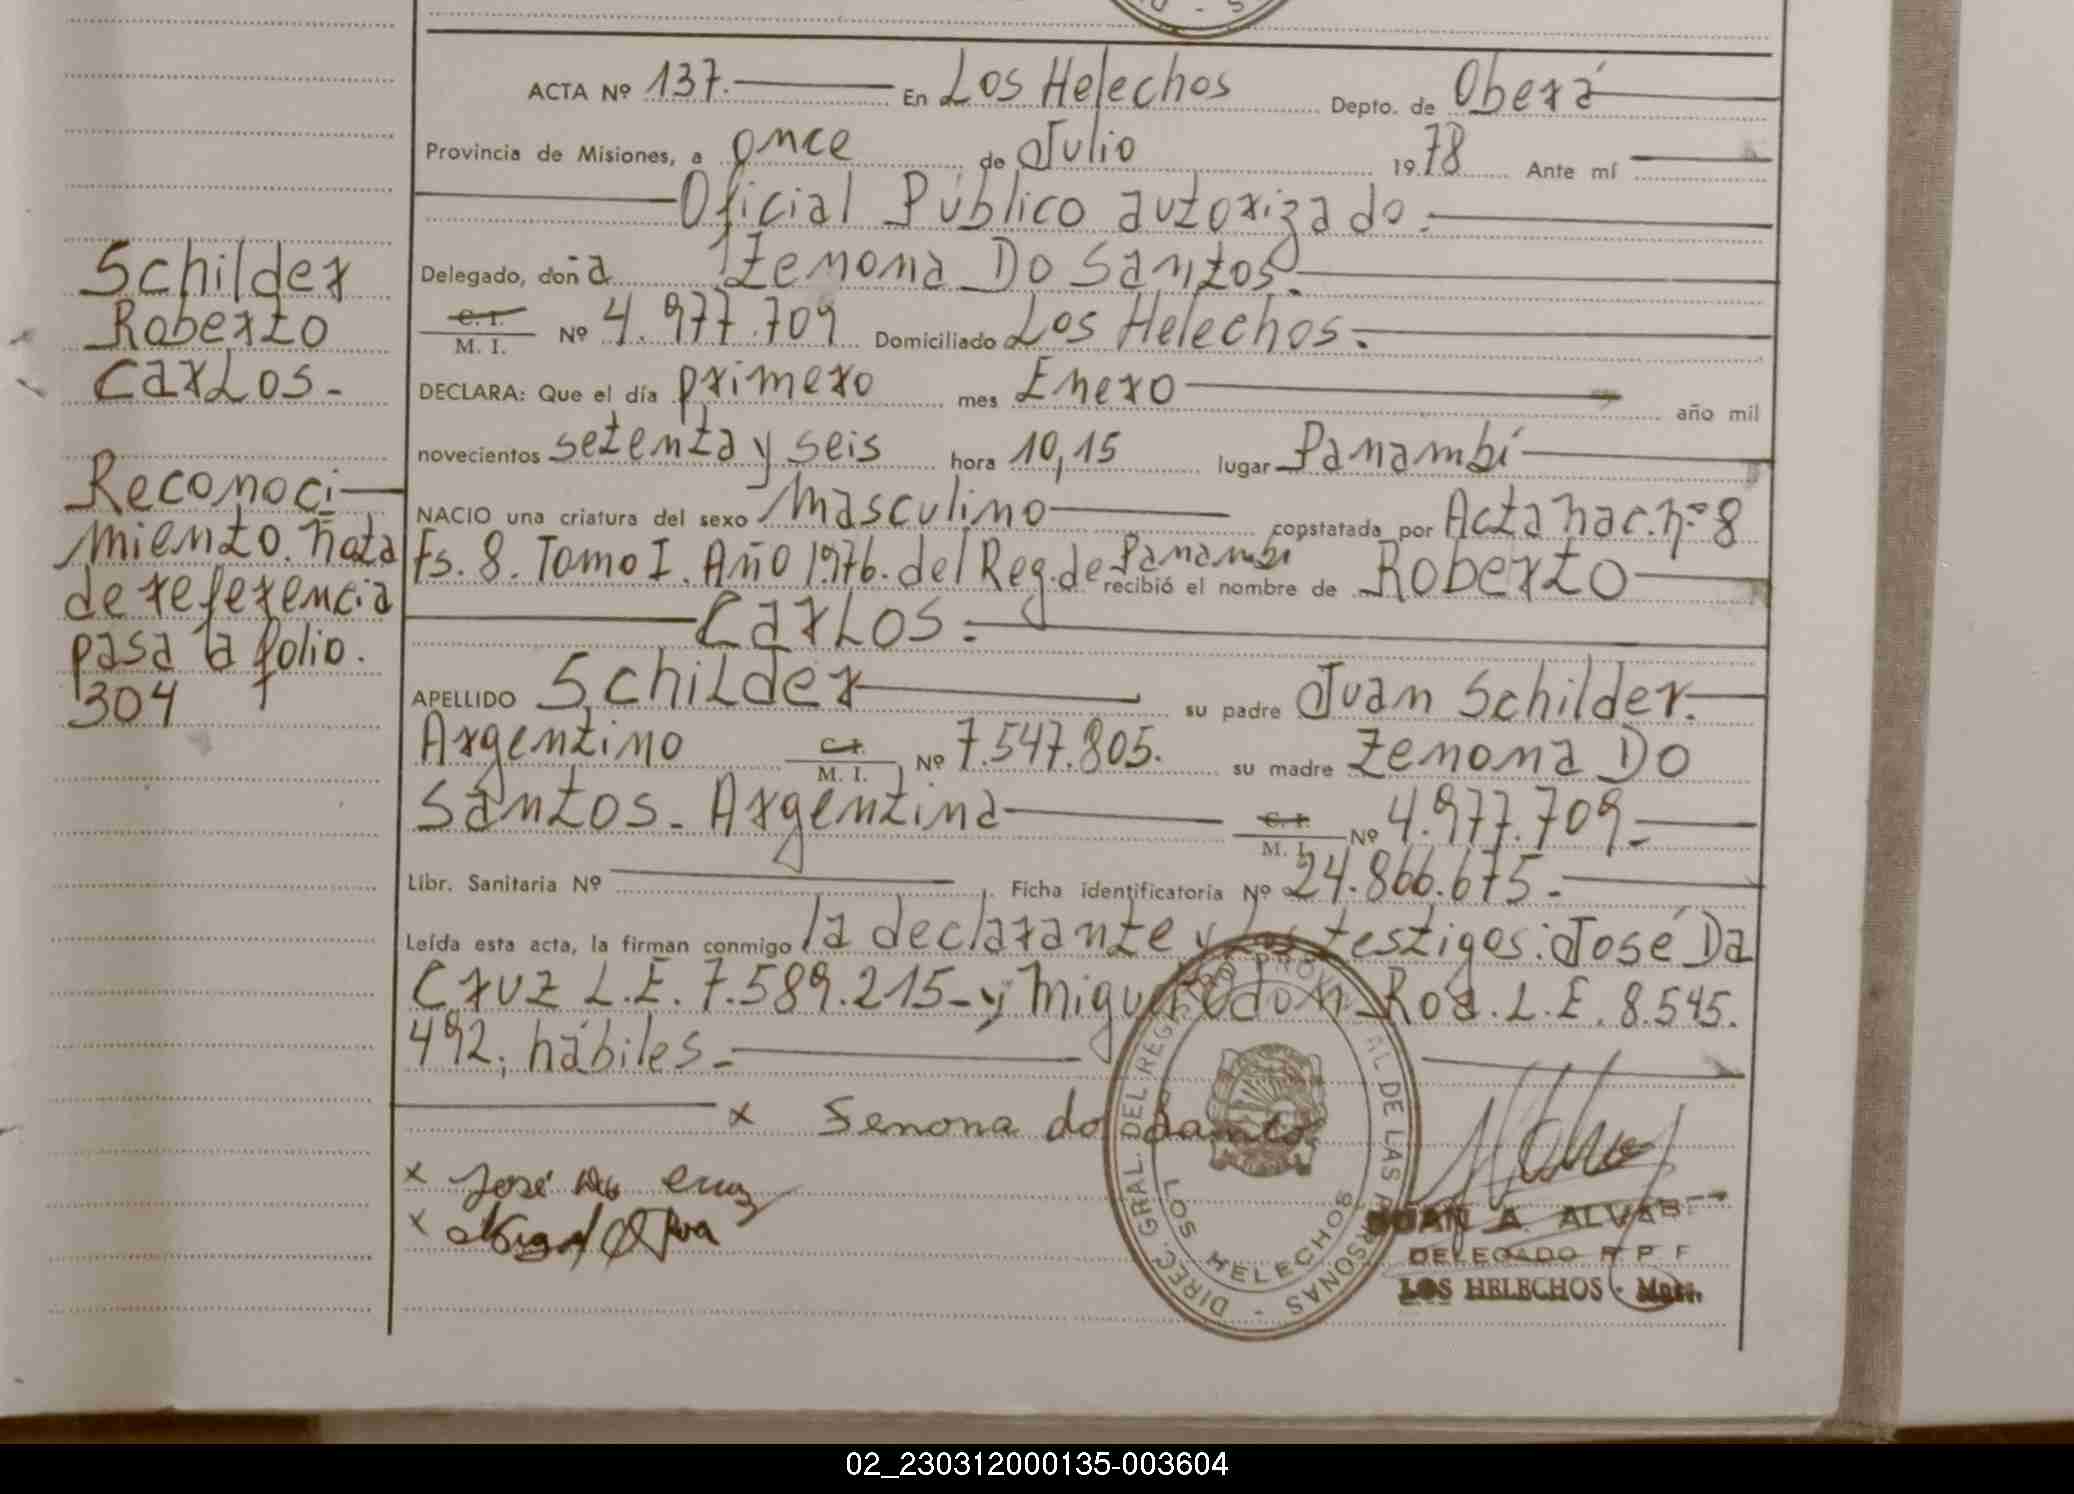 ACTA Nº 137. En Los Helechos Depto. de Oberá
Provincia de Misiones, a once de Julio 1978 Ante mí
Oficial Público autorizado.
Delegado, doña Zenona Do Santos.
C. I. M. I. Nº 4.977.709 Domiciliado Los Helechos.
DECLARA: Que el día primero mes Enero año mil
novecientos setenta y seis hora 10,15 lugar Panambí
NACIO una criatura del sexo Masculino constatada por Acta nac. nº 8
Fs. 8. Tomo I. Año 1976. del Reg. de Panambí recibió el nombre de Roberto
Carlos.
APELLIDO Schilder su padre Juan Schilder.
Argentino C. I. M. I. Nº 7.547.805. su madre Zenona Do
Santos. Argentina C. I. M. I. Nº 4.977.709.
Libr. Sanitaria Nº Ficha identificatoria Nº 24.866.675.
Leída esta acta, la firman conmigo la declarante y los testigos: José Da
Cruz L.E. 7.589.215- y Miguel L.E. 8.545.
492; hábiles.
x Senona do Santos
x José Da Cruz
x
Schilder
Roberto
Carlos.
Reconoci
miento. nota
de referencia
pasa a folio.
304
DIREC. GRAL. DEL REGISTRO PROVINCIAL DE LAS PERSONAS
LOS HELECHOS
JUAN A. ALVA
DELEGADO R P F
LOS HELECHOS - Mnes.
02_230312000135-003604